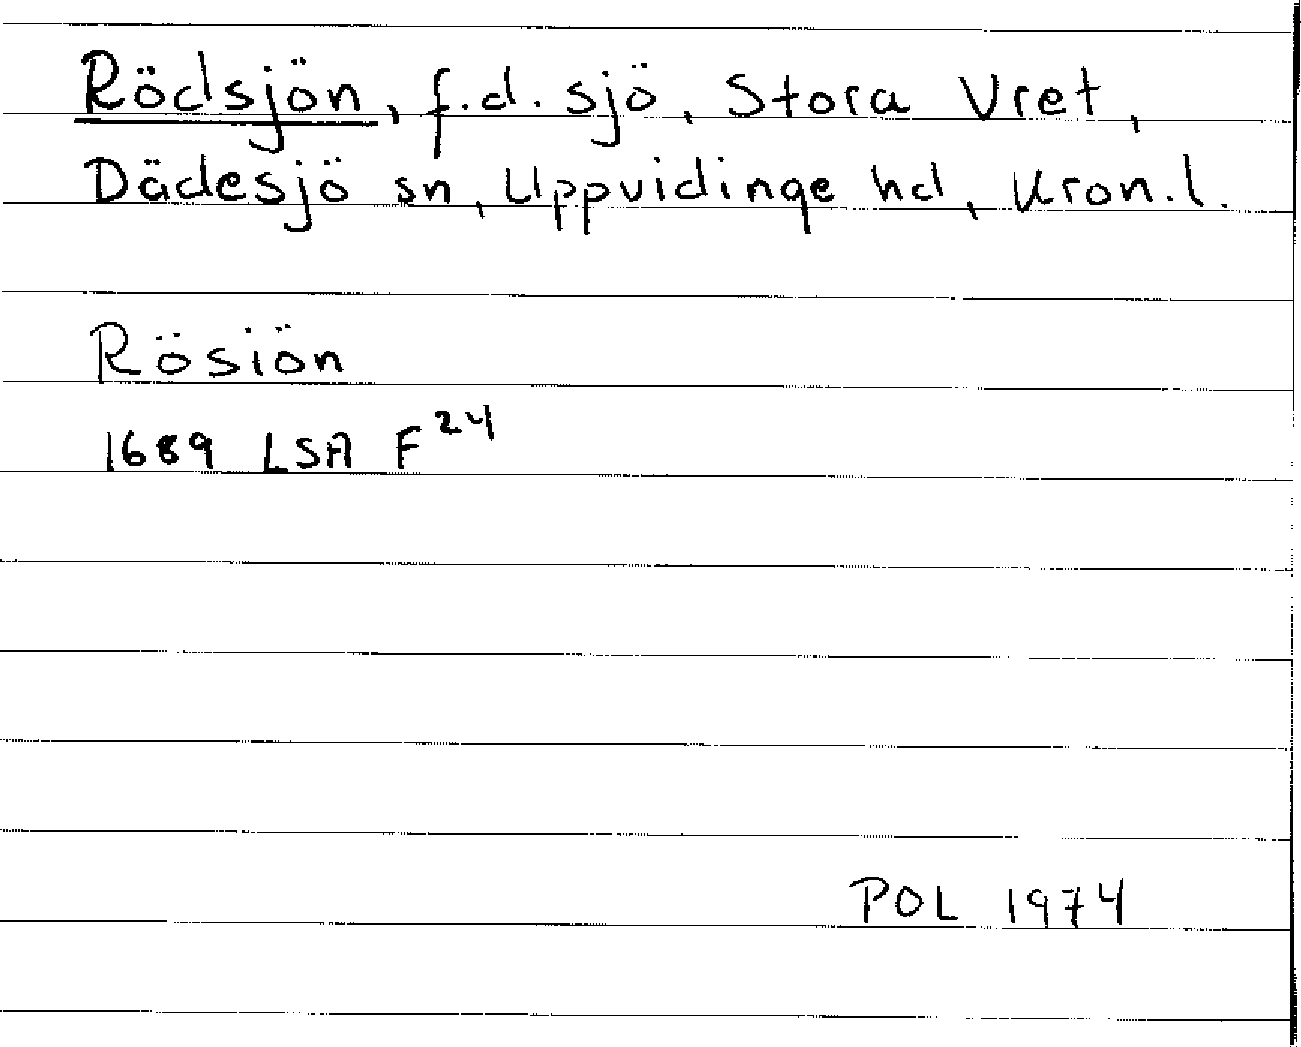 Rödsjön, f.d. sjö, Stora Vret,
Dädesjö sn, Uppvidinge hd, Kron.l.
Rösiön
1689 LSA F²⁴
POL 1974